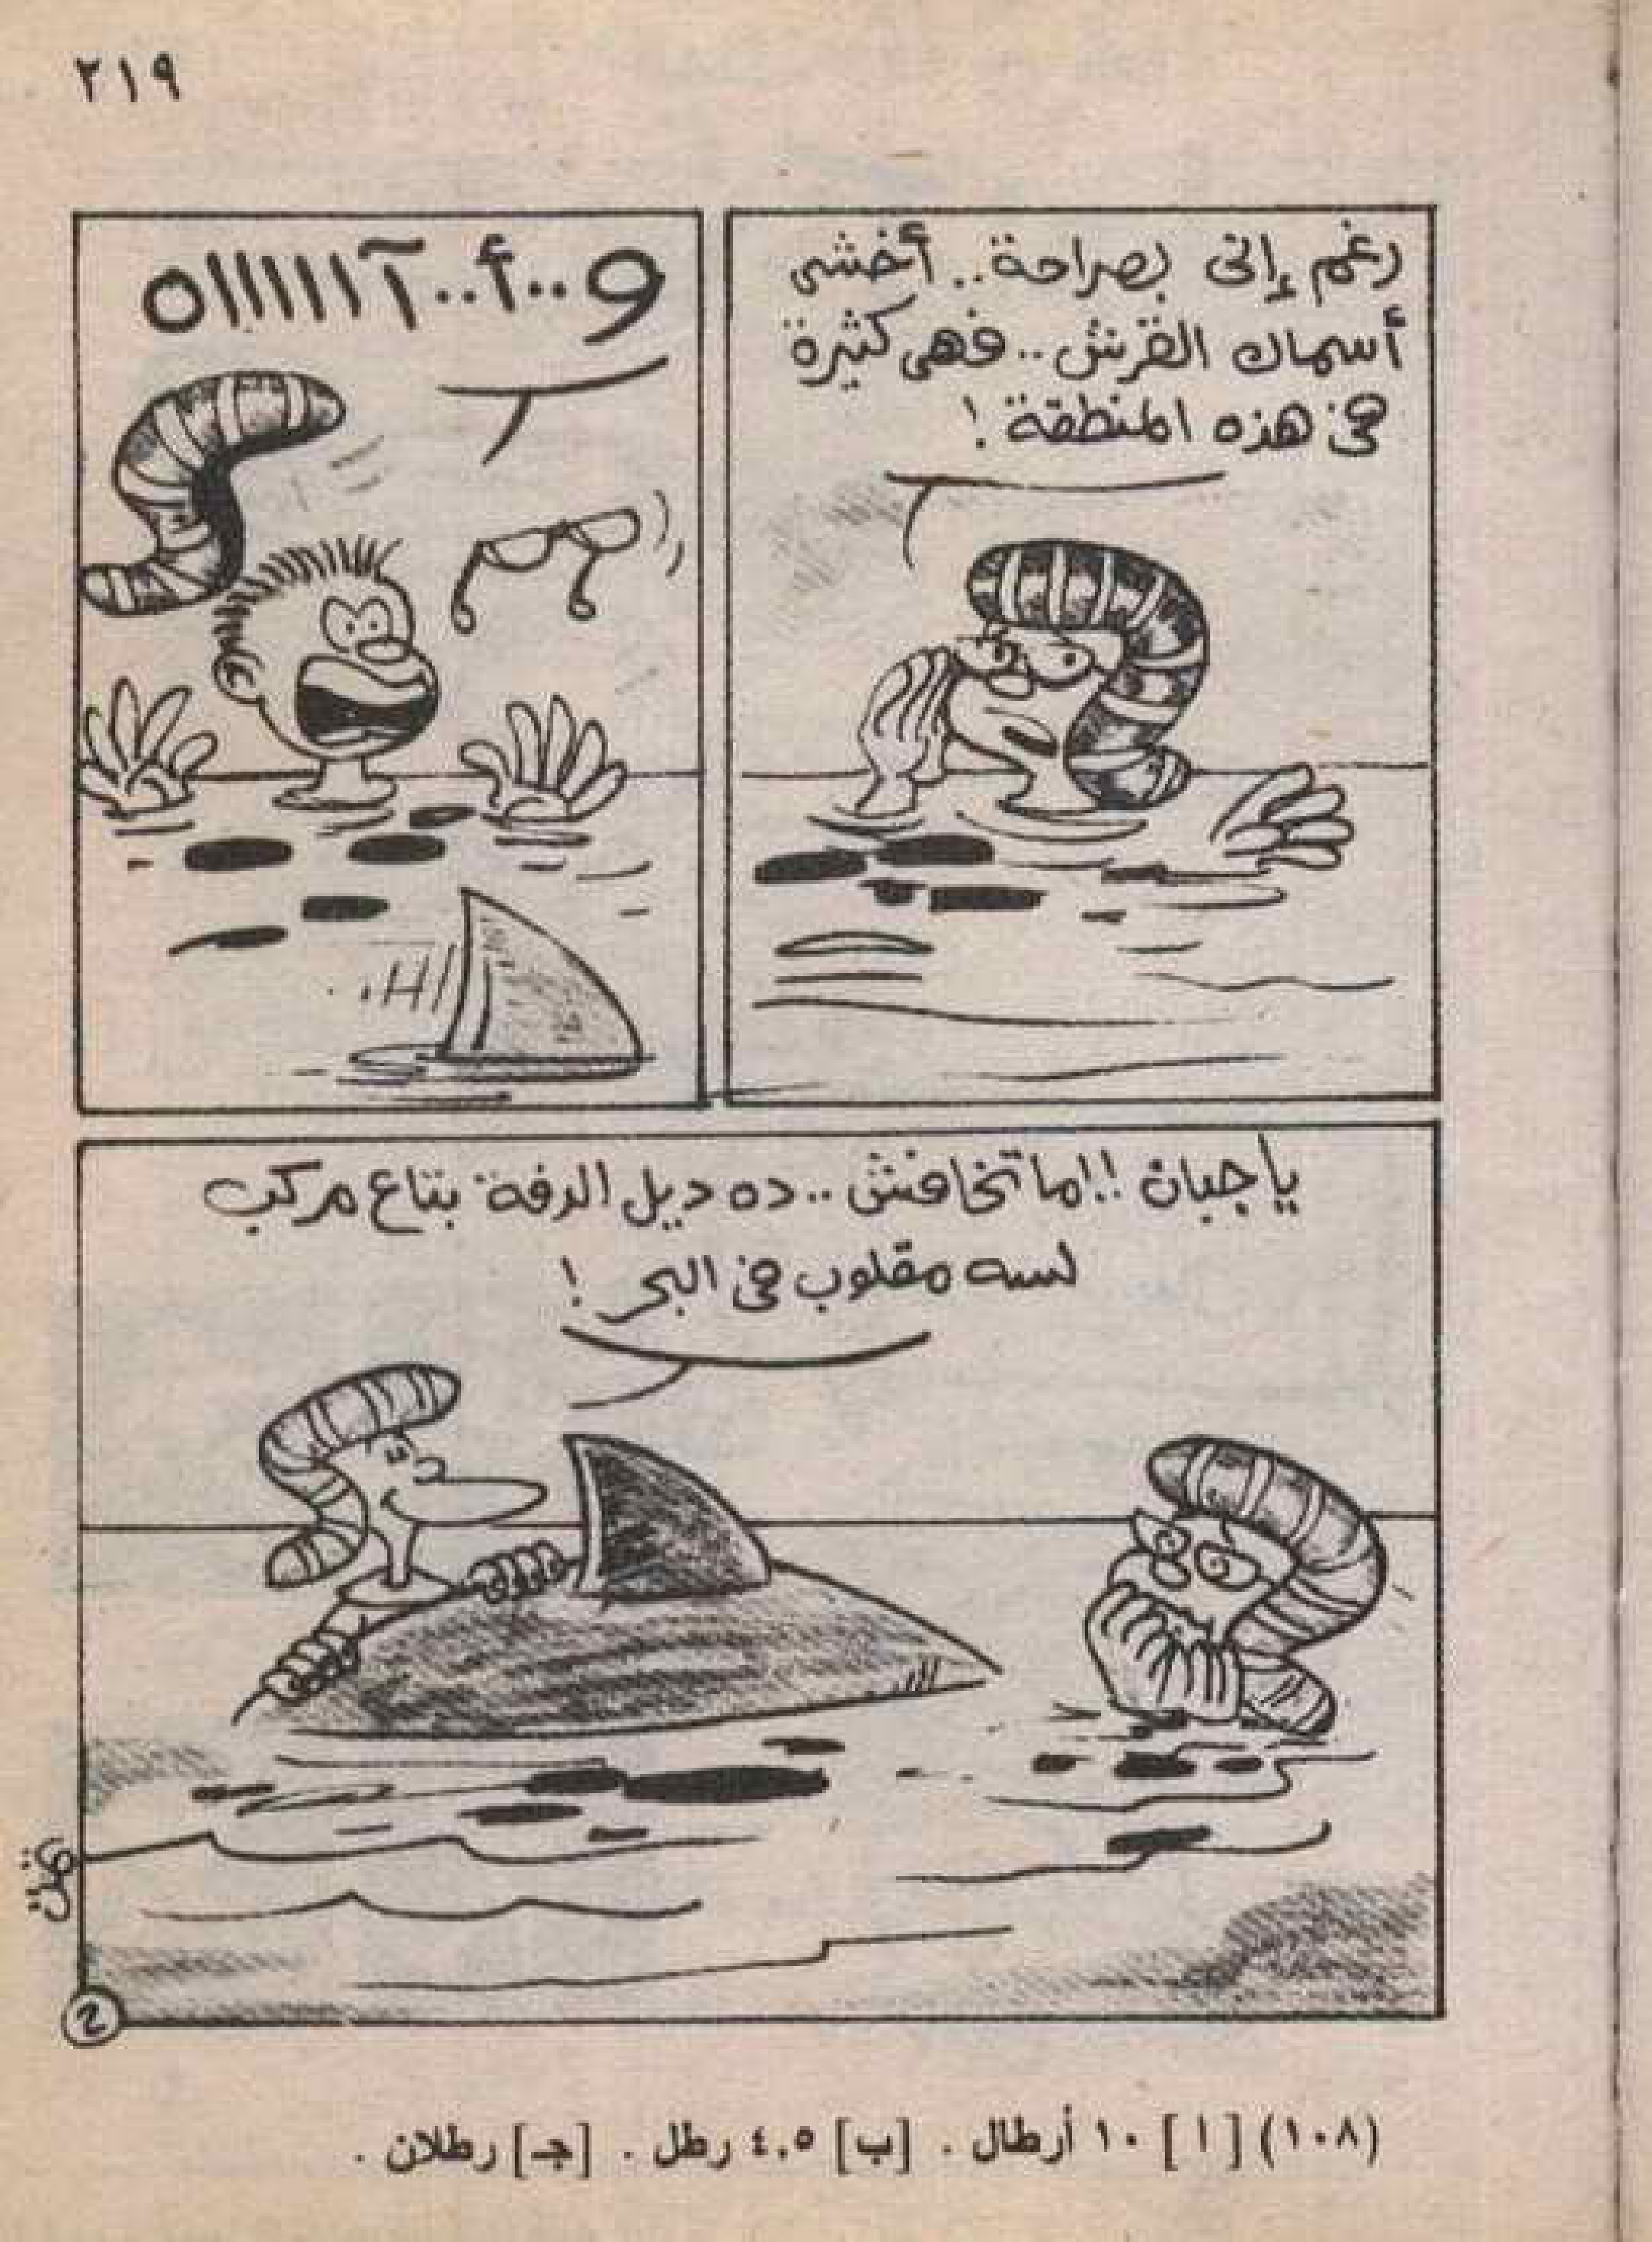 ٢١٩
رغم إنى بصراحة.. أخشى
أسماك القرش.. فهى كثيرة
فى هذه المنطقة!
و..أ..آاااااااه
يا جبان!! ما تخافش.. ده ديل الدفة بتاع مركب
لسه مقلوب فى البحر!
2
(١٠٨) [ ا ] ١٠ أرطال . [ب] ٤,٥ رطل . [جـ] رطلان .